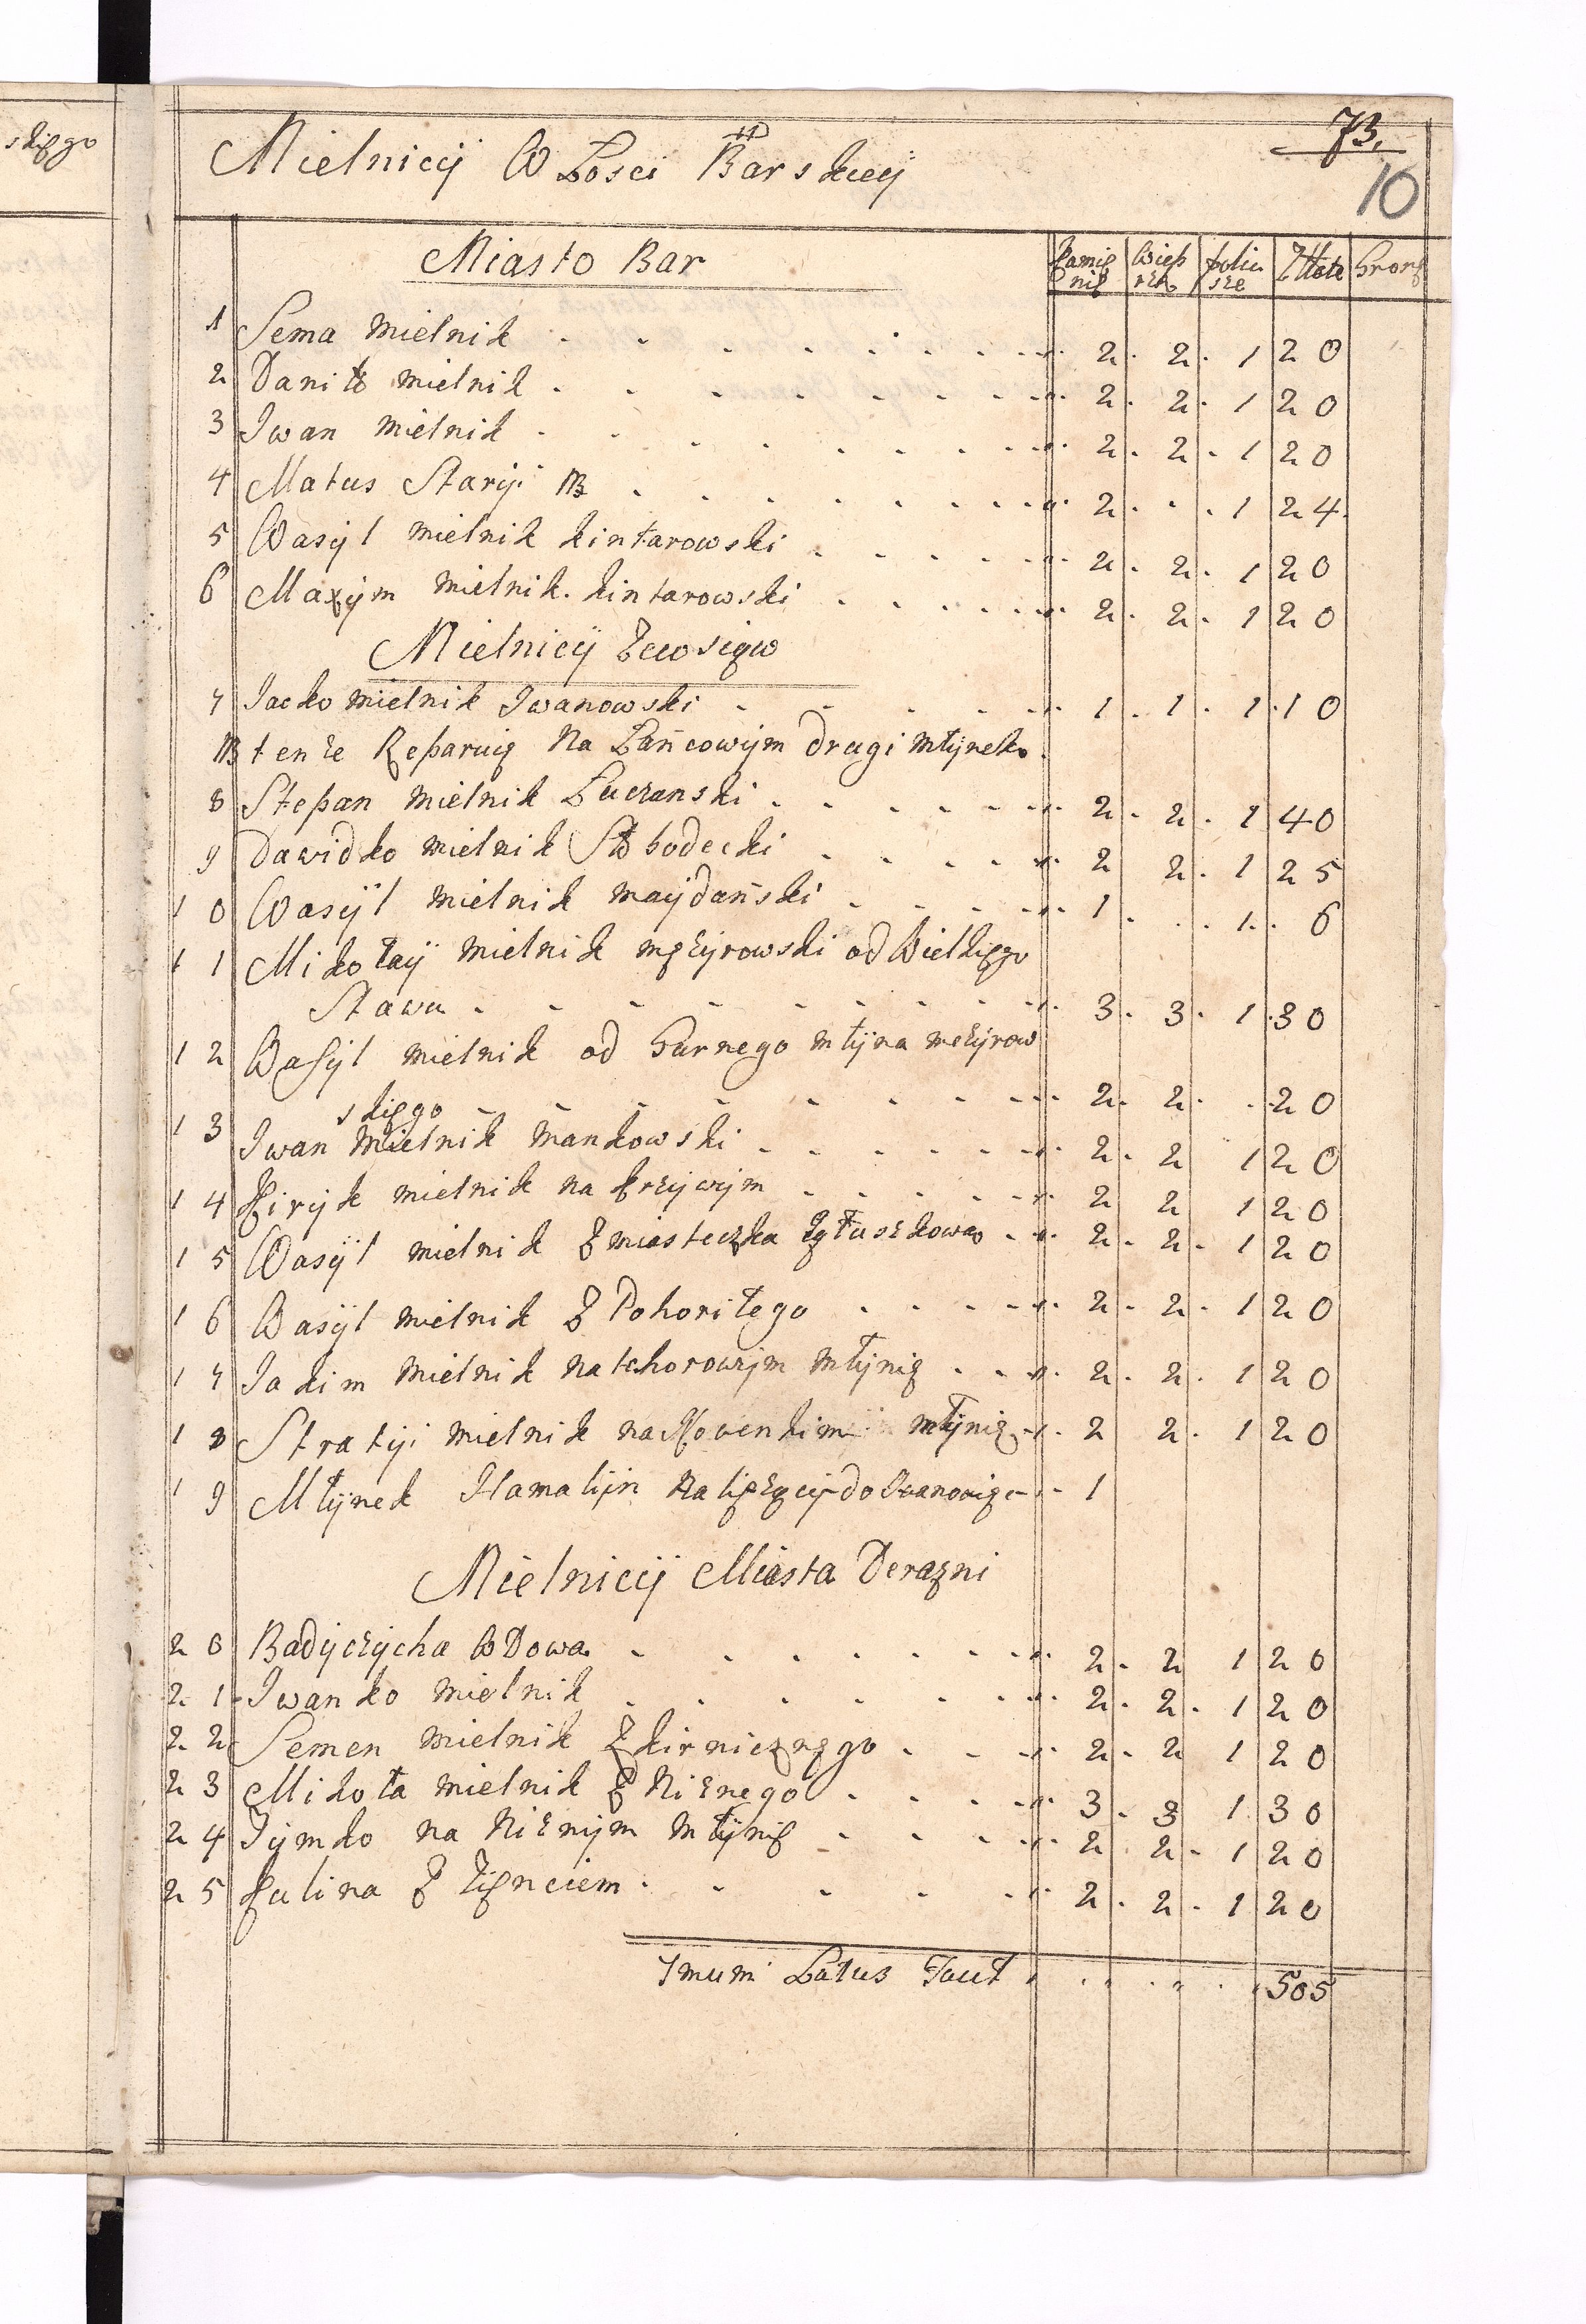 skiego
73.
10
Mielnicÿ W Łosci Barskieÿ
Miasto Bar
Kamie nie | Wieprze | folusze | Złłote | Grosze
1 Sema mielnik 2 2 1 20
2 Daniło mielnik 2 2 1 20
3 Iwan mielnik 2 2 1 20
4 Matus Staryi 2 1 24
5 Wasÿl mielnik kintarowski 2 2 1 20
6 Maxÿm mielnik kintarowski 2 2 1 20
Mielnicÿ Zewsiow
7 Jacko mielnik Iwanowski 1 1 1 10
NB tenze Reparuie Na Łańcowÿm drugi młÿnek
8 Stepan mielnik Łuczanski 2 2 1 40
9 Dawidko mielnik Słobodecki 2 2 1 25
10 Wasÿl mielnik maÿdański 1 1 6
11 Mikołaÿ mielnik meżÿrowski od Wielkiego
Stawu 3 3 1 30
12 Wasÿl mielnik od Gurnego młÿna meżÿrow
skiego 2 2 20
13 Iwan Mielnik mankowski 2 2 1 20
14 Kirÿk mielnik na krzÿwÿm 2 2 1 20
15 Wasÿl mielnik Z miasteczka 2 2 1 20
16 Wasÿl mielnik Z Pohoriłego 2 2 1 20
17 Jakim mielnik na tchorowÿm młÿnie 2 2 1 20
18 Stratÿi mielnik na młÿnie 2 2 1 20
19 Młÿnek Hamalÿn Nalieżącÿ do Iwanowiec 1
Mielnicÿ Miasta Derazni
20 Badÿczÿcha Wdowa 2 2 1 20
21 Iwanko mielnik 2 2 1 20
22 Semen mielnik Z kirnicznego 2 2 1 20
23 Mikoła mielnik Z Niżnego 3 3 1 30
24 Tÿmko na Niżnÿm młÿnie 2 2 1 20
25 Kulina Z Zięnciem 2 2 1 20
Imum Latus Facit 505